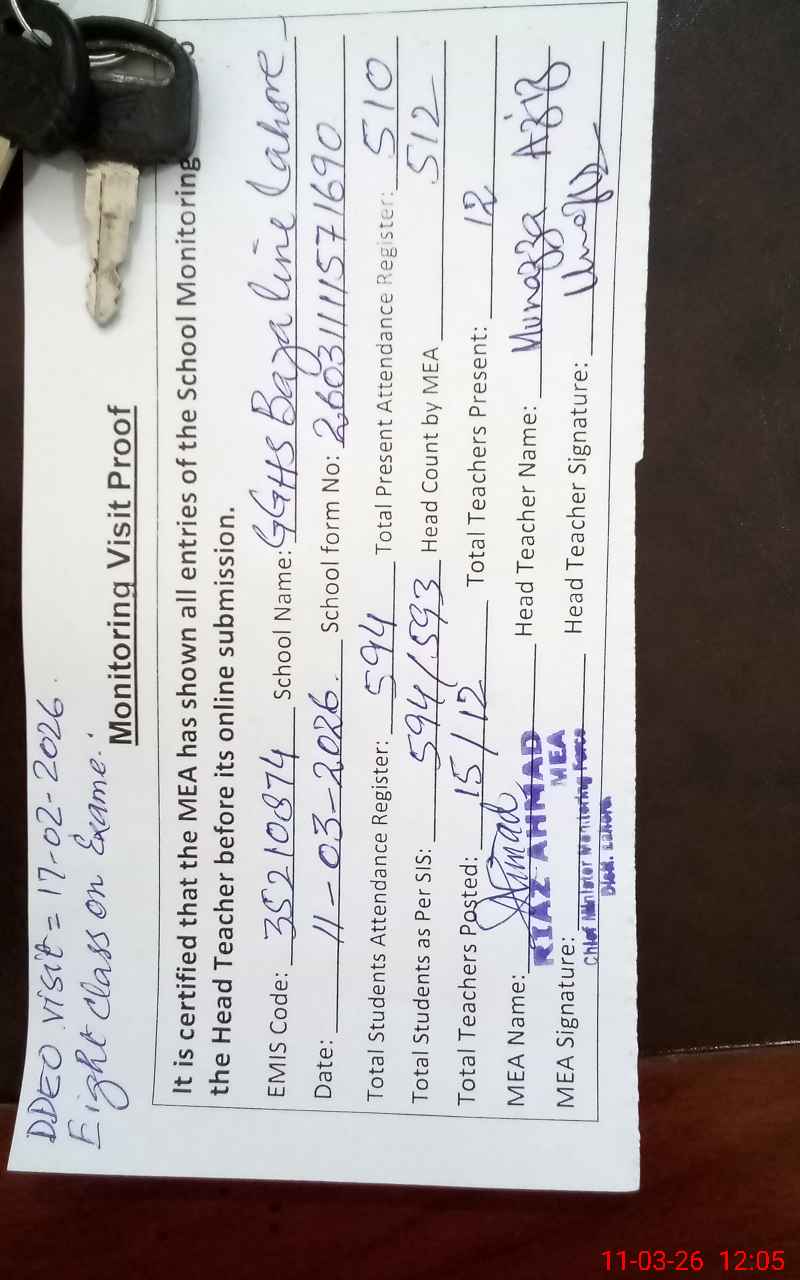 DDEO visit = 17-02-2026.
Eight Class on Exame.
Monitoring Visit Proof
It is certified that the MEA has shown all entries of the School Monitoring
the Head Teacher before its online submission.
EMIS Code: 35210874 School Name: GGHS Baza line Lahore
Date: 11-03-2026. School form No: 2603111157 1690
Total Students Attendance Register: 594 Total Present Attendance Register: 510
Total Students as Per SIS: 594/593 Head Count by MEA 512
Total Teachers Posted: 15/12 Total Teachers Present: 12
MEA Name: Ahmad Head Teacher Name: Munazza Aziz
RIAZ AHMAD
MEA
MEA Signature: Head Teacher Signature:
Chief Minister Monitoring Force
Distt. Lahore
11-03-26 12:05